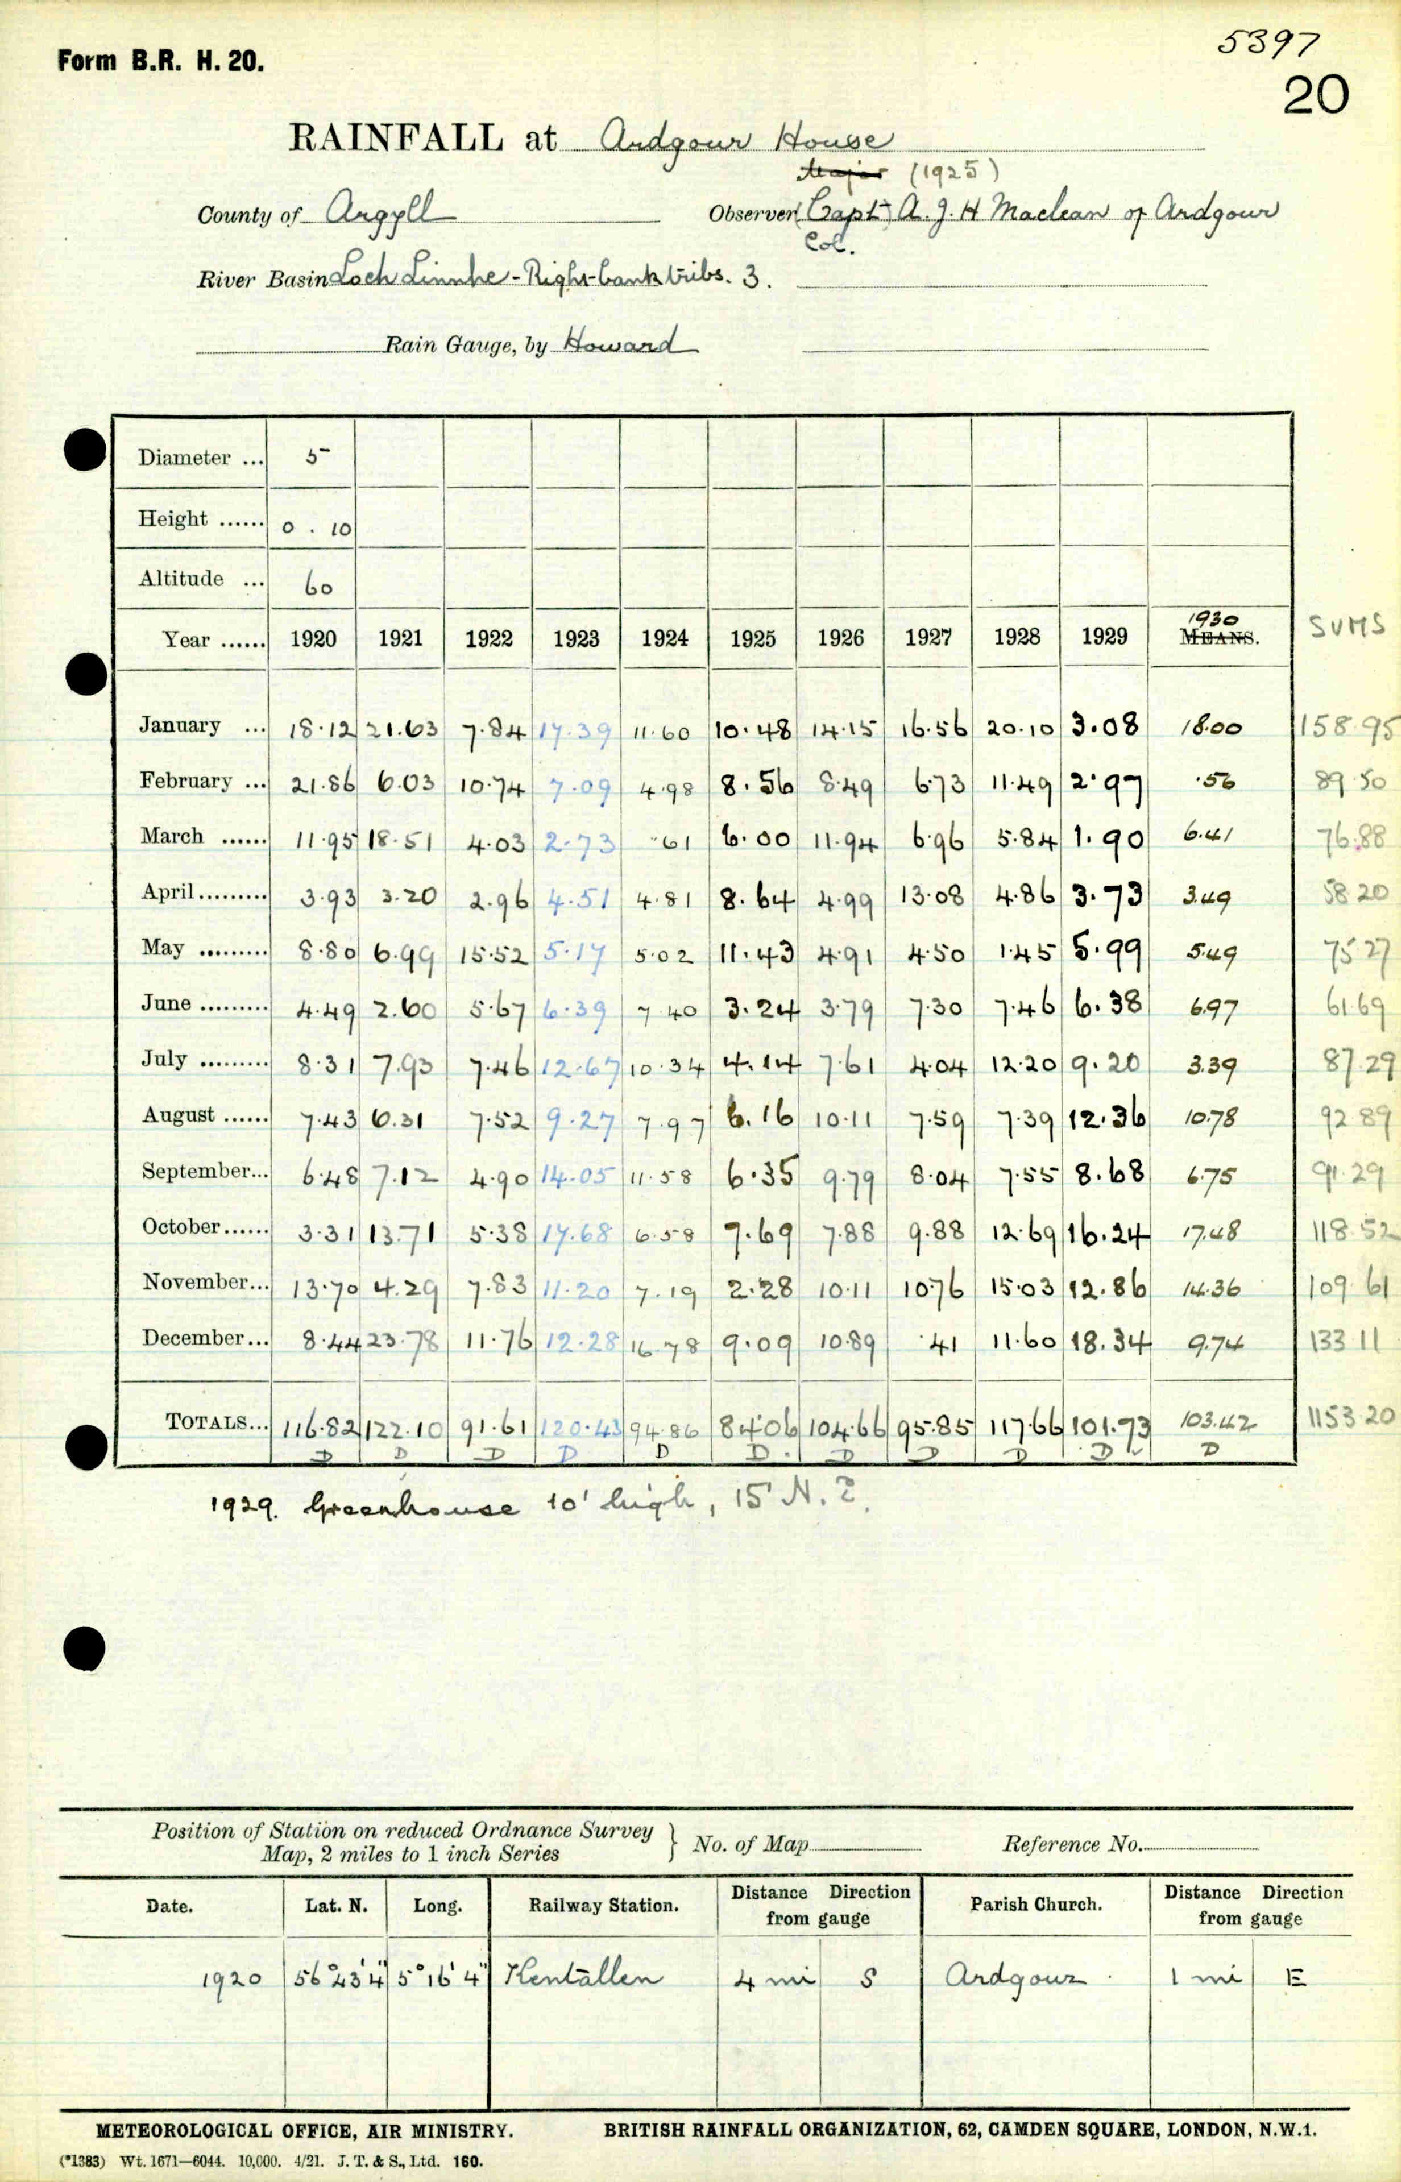 Form B.R. H. 20.
5397
20
RAINFALL at Ardgour House
Major (1925)
County of Argyll Observer (Capt) A. J. H Maclean of Ardgour
Col.
River Basin Loch Linnhe - Right-bank tribs. 3.
Rain Gauge, by Howard
Diameter ... 5
Height ...... 0 . 10
Altitude ... 60
1930
Year ...... 1920 1921 1922 1923 1924 1925 1926 1927 1928 1929 MEANS. SUMS
January ... 18.12 21.63 7.84 17.39 11.60 10.48 14.15 16.56 20.10 3.08 18.00 158.95
February ... 21.86 6.03 10.74 7.09 4.98 8.56 8.49 6.73 11.49 2.97 .56 89.50
March ...... 11.95 18.51 4.03 2.73 .61 6.00 11.94 6.96 5.84 1.90 6.41 76.88
April ......... 3.93 3.20 2.96 4.51 4.81 8.64 4.99 13.08 4.86 3.73 3.49 58.20
May ......... 8.80 6.99 15.52 5.17 5.02 11.43 4.91 4.50 1.45 5.99 5.49 75.27
June ......... 4.49 2.60 5.67 6.39 7.40 3.24 3.79 7.30 7.46 6.38 6.97 61.69
July ......... 8.31 7.93 7.46 12.67 10.34 4.14 7.61 4.04 12.20 9.20 3.39 87.29
August ...... 7.43 6.31 7.52 9.27 7.97 6.16 10.11 7.59 7.39 12.36 10.78 92.89
September... 6.48 7.12 4.90 14.05 11.58 6.35 9.79 8.04 7.55 8.68 6.75 91.29
October...... 3.31 13.71 5.38 17.68 6.58 7.69 7.88 9.88 12.69 16.24 17.48 118.52
November... 13.70 4.29 7.83 11.20 7.19 2.28 10.11 10.76 15.03 12.86 14.36 109.61
December... 8.44 23.78 11.76 12.28 16.78 9.09 10.89 .41 11.60 18.34 9.74 133.11
TOTALS... 116.82 122.10 91.61 120.43 94.86 84.06 104.66 95.85 117.66 101.73 103.42 1153.20
D D D D D D D D D D D
1929. Greenhouse 10' high, 15' N.E.
Position of Station on reduced Ordnance Survey
Map, 2 miles to 1 inch Series } No. of Map Reference No.
Date. Lat. N. Long. Railway Station. Distance Direction from gauge Parish Church. Distance Direction from gauge
1920 56° 43' 4" 5° 16' 4" Kentallen 4 mi S Ardgour 1 mi E
METEOROLOGICAL OFFICE, AIR MINISTRY. BRITISH RAINFALL ORGANIZATION, 62, CAMDEN SQUARE, LONDON, N.W.1.
(*1383) Wt. 1671—6044. 10,000. 4/21. J. T. & S., Ltd. 160.